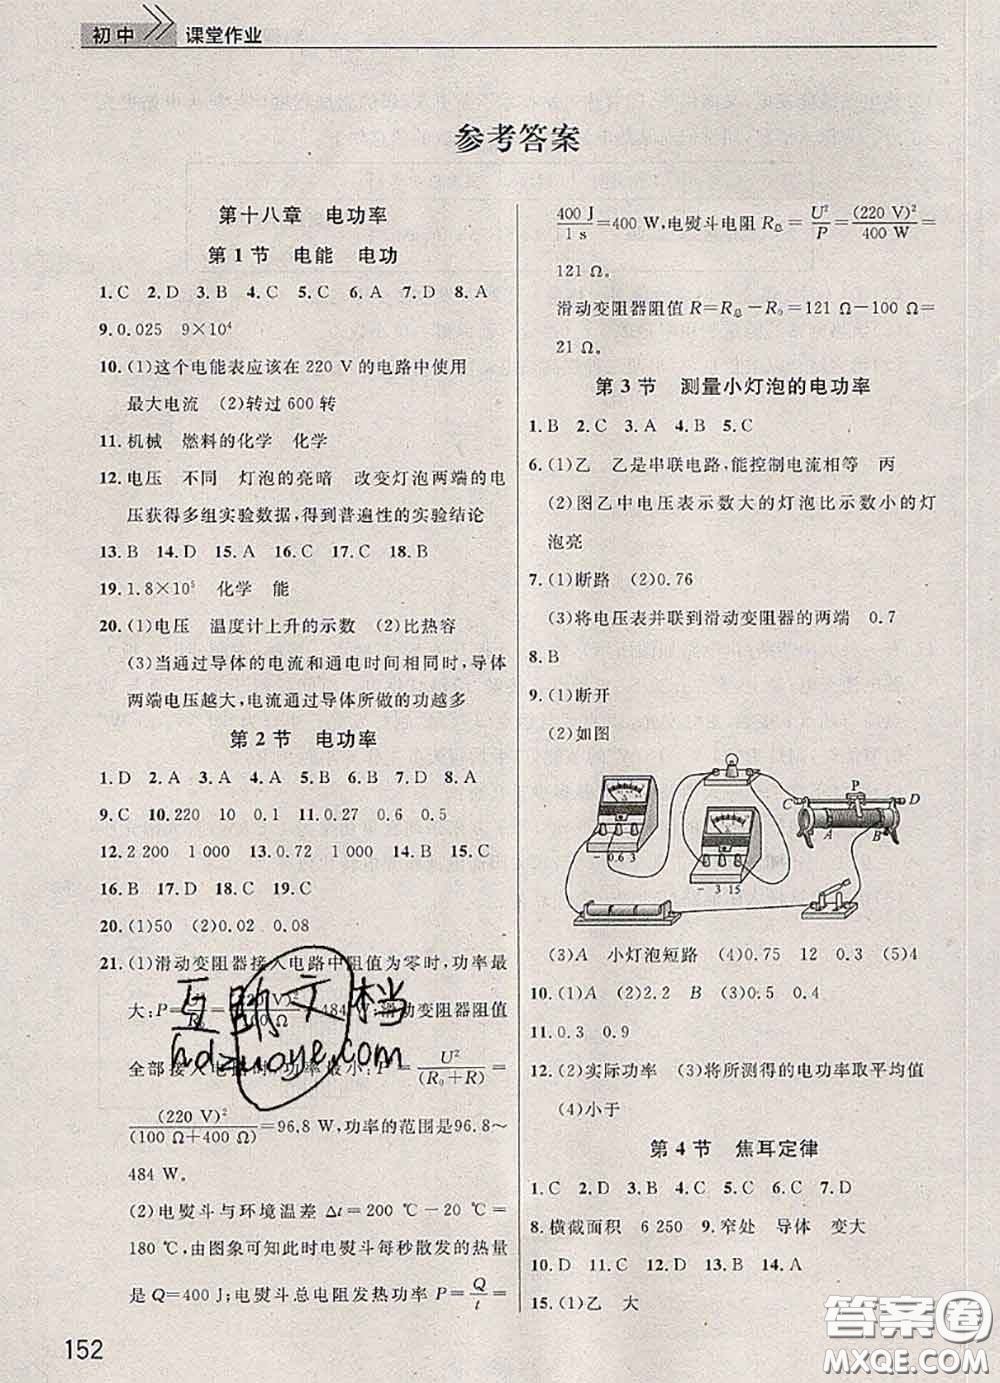 初中 课堂作业
参考答案
第十八章 电功率
第1节 电能 电功
1.C 2.D 3.B 4.C 5.C 6.A 7.D 8.A
9.0.025 9×10⁴
10.(1)这个电能表应该在220 V的电路中使用
最大电流 (2)转过600转
11.机械 燃料的化学 化学
12.电压 不同 灯泡的亮暗 改变灯泡两端的电
压获得多组实验数据,得到普遍性的实验结论
13.B 14.D 15.A 16.C 17.C 18.B
19.1.8×10⁵ 化学 能
20.(1)电压 温度计上升的示数 (2)比热容
(3)当通过导体的电流和通电时间相同时,导体
两端电压越大,电流通过导体所做的功越多
第2节 电功率
1.D 2.A 3.A 4.A 5.B 6.B 7.D 8.A
9.C 10.220 10 0.1 11.0.27 0.6 0.5
12.2 200 1 000 13.0.72 1 000 14.B 15.C
16.B 17.D 18.C 19.C
20.(1)50 (2)0.02 0.08
21.(1)滑动变阻器接入电路中阻值为零时,功率最
大:P=U²/R₀=(220 V)²/100 Ω=484 W;滑动变阻器阻值
全部接入电路时,功率最小:P=U²/(R₀+R)=
(220 V)²/(100 Ω+400 Ω)=96.8 W,功率的范围是96.8～
484 W。
(2)电熨斗与环境温差 Δt=200 ℃-20 ℃=
180 ℃,由图象可知此时电熨斗每秒散发的热量
是 Q=400 J;电熨斗总电阻发热功率 P=Q/t=
400 J/1 s=400 W,电熨斗电阻 R总=U²/P=(220 V)²/400 W=
121 Ω。
滑动变阻器阻值 R=R总-R₀=121 Ω-100 Ω=
21 Ω。
第3节 测量小灯泡的电功率
1.B 2.C 3.A 4.B 5.C
6.(1)乙 乙是串联电路,能控制电流相等 丙
(2)图乙中电压表示数大的灯泡比示数小的灯
泡亮
7.(1)断路 (2)0.76
(3)将电压表并联到滑动变阻器的两端 0.7
8.B
9.(1)断开
(2)如图
C P D
A B
- 0.6 3
- 3 15
(3)A 小灯泡短路 (4)0.75 12 0.3 (5)4
10.(1)A (2)2.2 B (3)0.5 0.4
11.0.3 0.9
12.(2)实际功率 (3)将所测得的电功率取平均值
(4)小于
第4节 焦耳定律
1.C 2.A 3.D 4.C 5.C 6.C 7.D
8.横截面积 6 250 9.窄处 导体 变大
10.D 11.D 12.C 13.B 14.A
15.(1)乙 大
152
互助文档
hdzuoye.com
答案圈
MXQE.COM